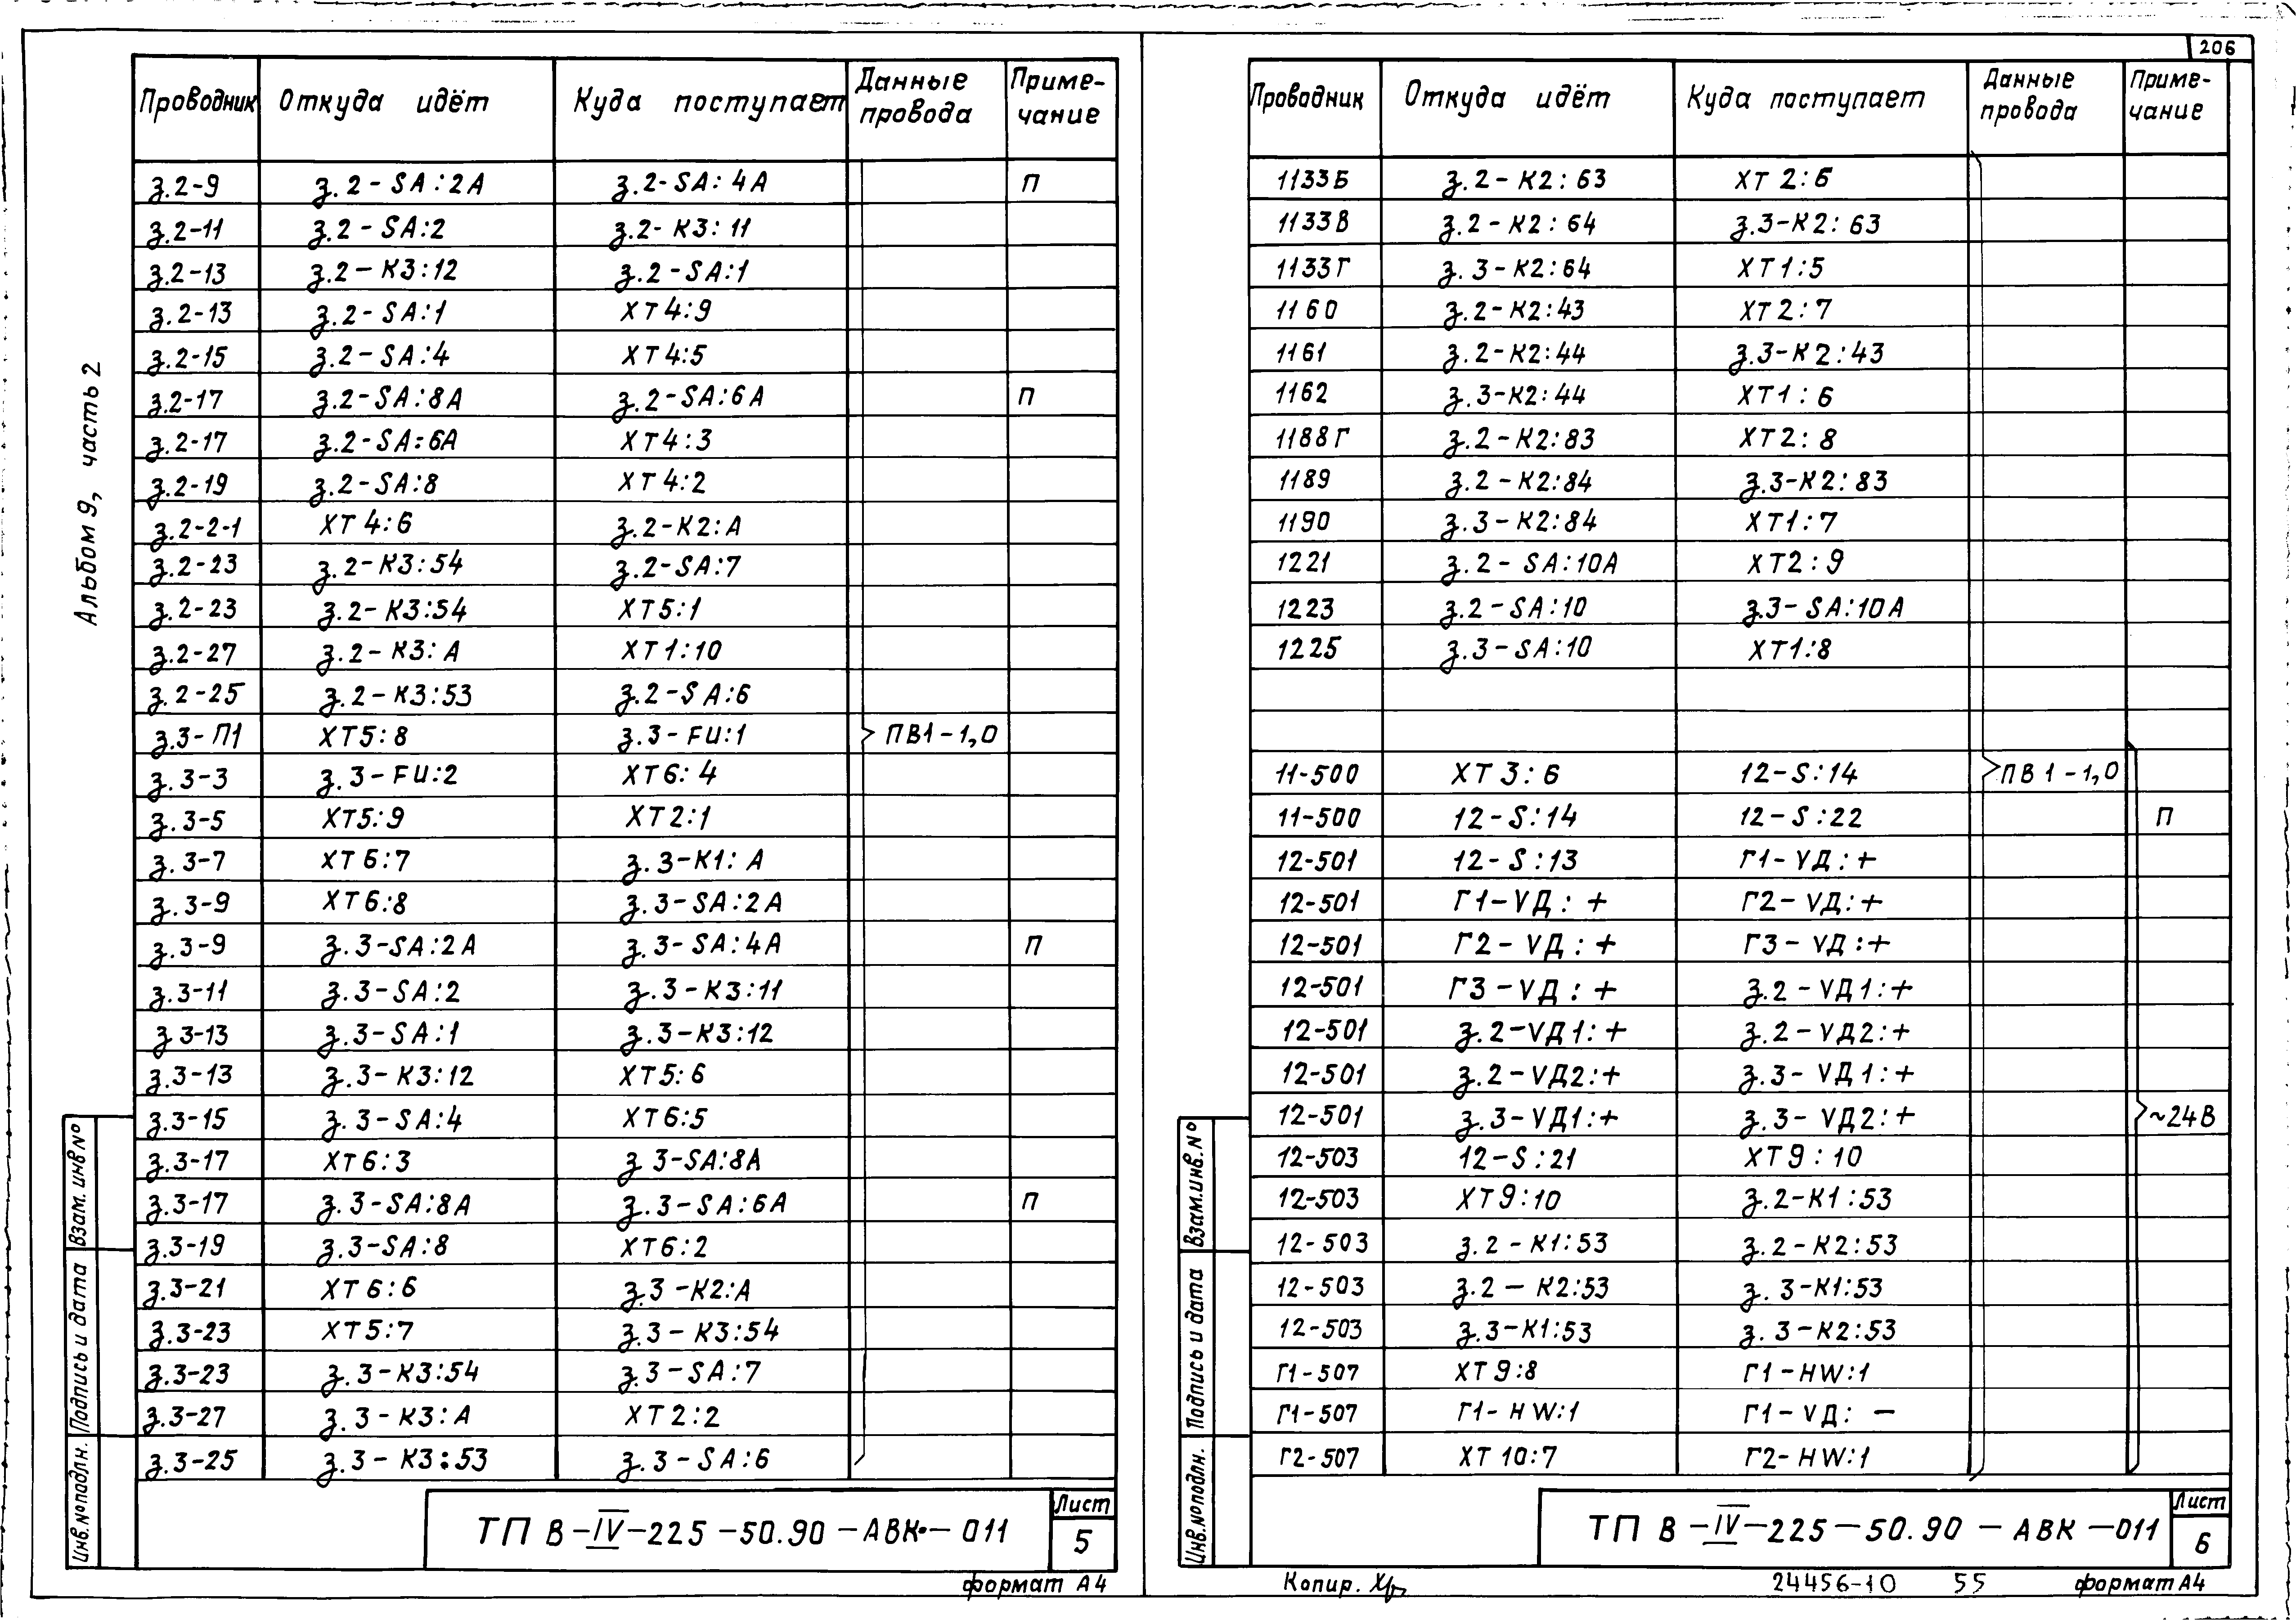 206
Альбом 9, часть 2
Проводник Откуда идёт Куда поступает Данные провода Приме-чание
з.2-9 з.2-SA:2А з.2-SA:4А П
з.2-11 з.2-SA:2 з.2-К3:11
з.2-13 з.2-К3:12 з.2-SA:1
з.2-13 з.2-SA:1 ХТ4:9
з.2-15 з.2-SA:4 ХТ4:5
з.2-17 з.2-SA:8А з.2-SA:6А П
з.2-17 з.2-SA:6А ХТ4:3
з.2-19 з.2-SA:8 ХТ4:2
з.2-2-1 ХТ4:6 з.2-К2:А
з.2-23 з.2-К3:54 з.2-SA:7
з.2-23 з.2-К3:54 ХТ5:1
з.2-27 з.2-К3:А ХТ1:10
з.2-25 з.2-К3:53 з.2-SA:6
з.3-П1 ХТ5:8 з.3-FU:1 ПВ1-1,0
з.3-3 з.3-FU:2 ХТ6:4
з.3-5 ХТ5:9 ХТ2:1
з.3-7 ХТ6:7 з.3-К1:А
з.3-9 ХТ6:8 з.3-SA:2А
з.3-9 з.3-SA:2А з.3-SA:4А П
з.3-11 з.3-SA:2 з.3-К3:11
з 3-13 з.3-SA:1 з.3-К3:12
з.3-13 з.3-К3:12 ХТ5:6
з.3-15 з.3-SA:4 ХТ6:5
з.3-17 ХТ6:3 з 3-SA:8А
з.3-17 з.3-SA:8А з.3-SA:6А П
з.3-19 з.3-SA:8 ХТ6:2
з.3-21 ХТ6:6 з.3-К2:А
з.3-23 ХТ5:7 з.3-К3:54
з.3-23 з.3-К3:54 з.3-SA:7
з.3-27 з.3-К3:А ХТ2:2
з.3-25 з.3-К3:53 з.3-SA:6
Взам. инв №
Подпись и дата
Инв.№подлн.
ТП В-IV-225-50.90-АВК-011
Лист
5
формат А4
Проводник Откуда идёт Куда поступает Данные провода Приме-чание
1133Б з.2-К2:63 ХТ2:6
1133В з.2-К2:64 з.3-К2:63
1133Г з.3-К2:64 ХТ1:5
1160 з.2-К2:43 ХТ2:7
1161 з.2-К2:44 з.3-К2:43
1162 з.3-К2:44 ХТ1:6
1188Г з.2-К2:83 ХТ2:8
1189 з.2-К2:84 з.3-К2:83
1190 з.3-К2:84 ХТ1:7
1221 з.2-SA:10А ХТ2:9
1223 з.2-SA:10 з.3-SA:10А
1225 з.3-SA:10 ХТ1:8
11-500 ХТ3:6 12-S:14 ПВ1-1,0
11-500 12-S:14 12-S:22 П
12-501 12-S:13 Г1-VД:+
12-501 Г1-VД:+ Г2-VД:+
12-501 Г2-VД:+ Г3-VД:+
12-501 Г3-VД:+ з.2-VД1:+
12-501 з.2-VД1:+ з.2-VД2:+
12-501 з.2-VД2:+ з.3-VД1:+
12-501 з.3-VД1:+ з.3-VД2:+ ~24В
12-503 12-S:21 ХТ9:10
12-503 ХТ9:10 з.2-К1:53
12-503 з.2-К1:53 з.2-К2:53
12-503 з.2-К2:53 з.3-К1:53
12-503 з.3-К1:53 з.3-К2:53
Г1-507 ХТ9:8 Г1-HW:1
Г1-507 Г1-HW:1 Г1-VД:-
Г2-507 ХТ10:7 Г2-HW:1
Взам.инв.№
Подпись и дата
Инв.№подлн.
ТП В-IV-225-50.90-АВК-011
Лист
6
Копир.
24456-10 55
формат А4